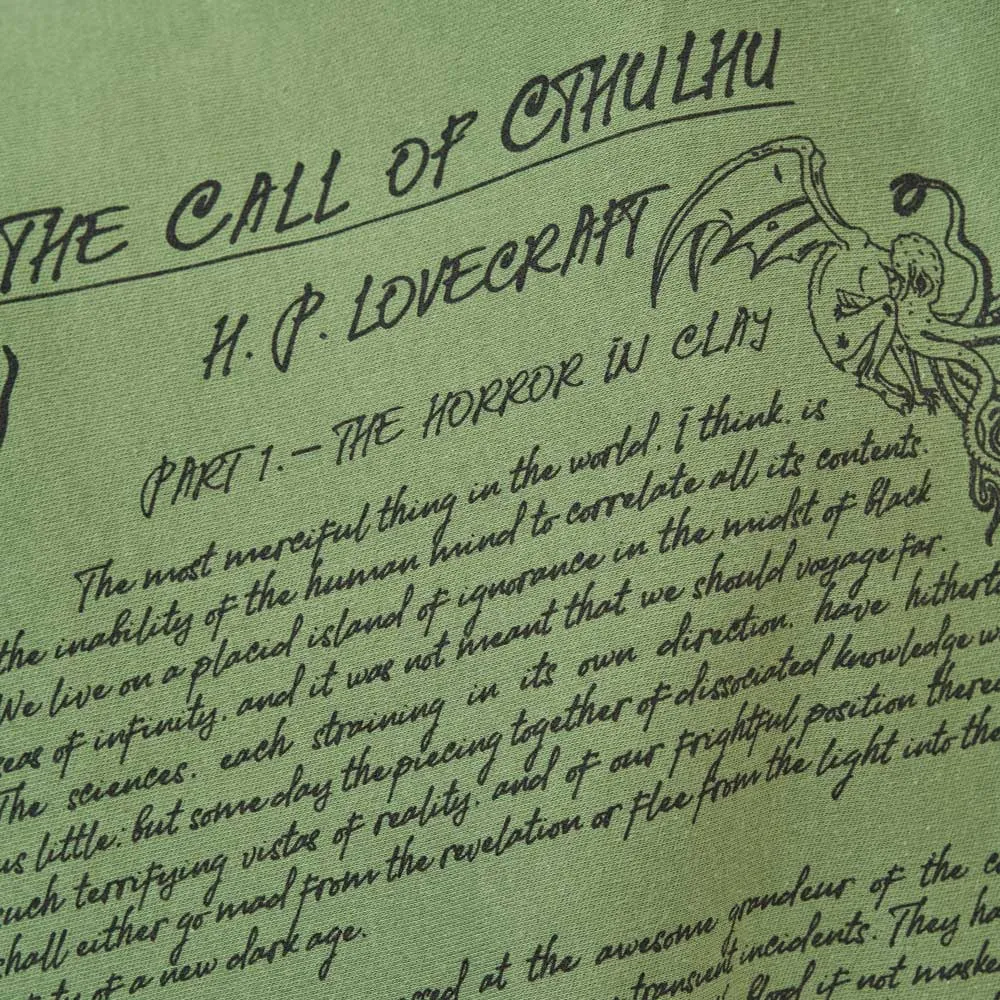 THE CALL OF CTHULHU
H. P. LOVECRAFT
PART 1. – THE HORROR IN CLAY
The most merciful thing in the world. I think. is
the inability of the human mind to correlate all its contents.
We live on a placid island of ignorance in the midst of black
seas of infinity. and it was not meant that we should voyage far.
The sciences. each straining in its own direction. have
us little: but some day the piecing together of dissociated knowledge
such terrifying vistas of reality. and of our frightful position
shall either go mad from the revelation or flee from the light into the
of a new dark age.
at the awesome grandeur of the
transient incidents. They
if not